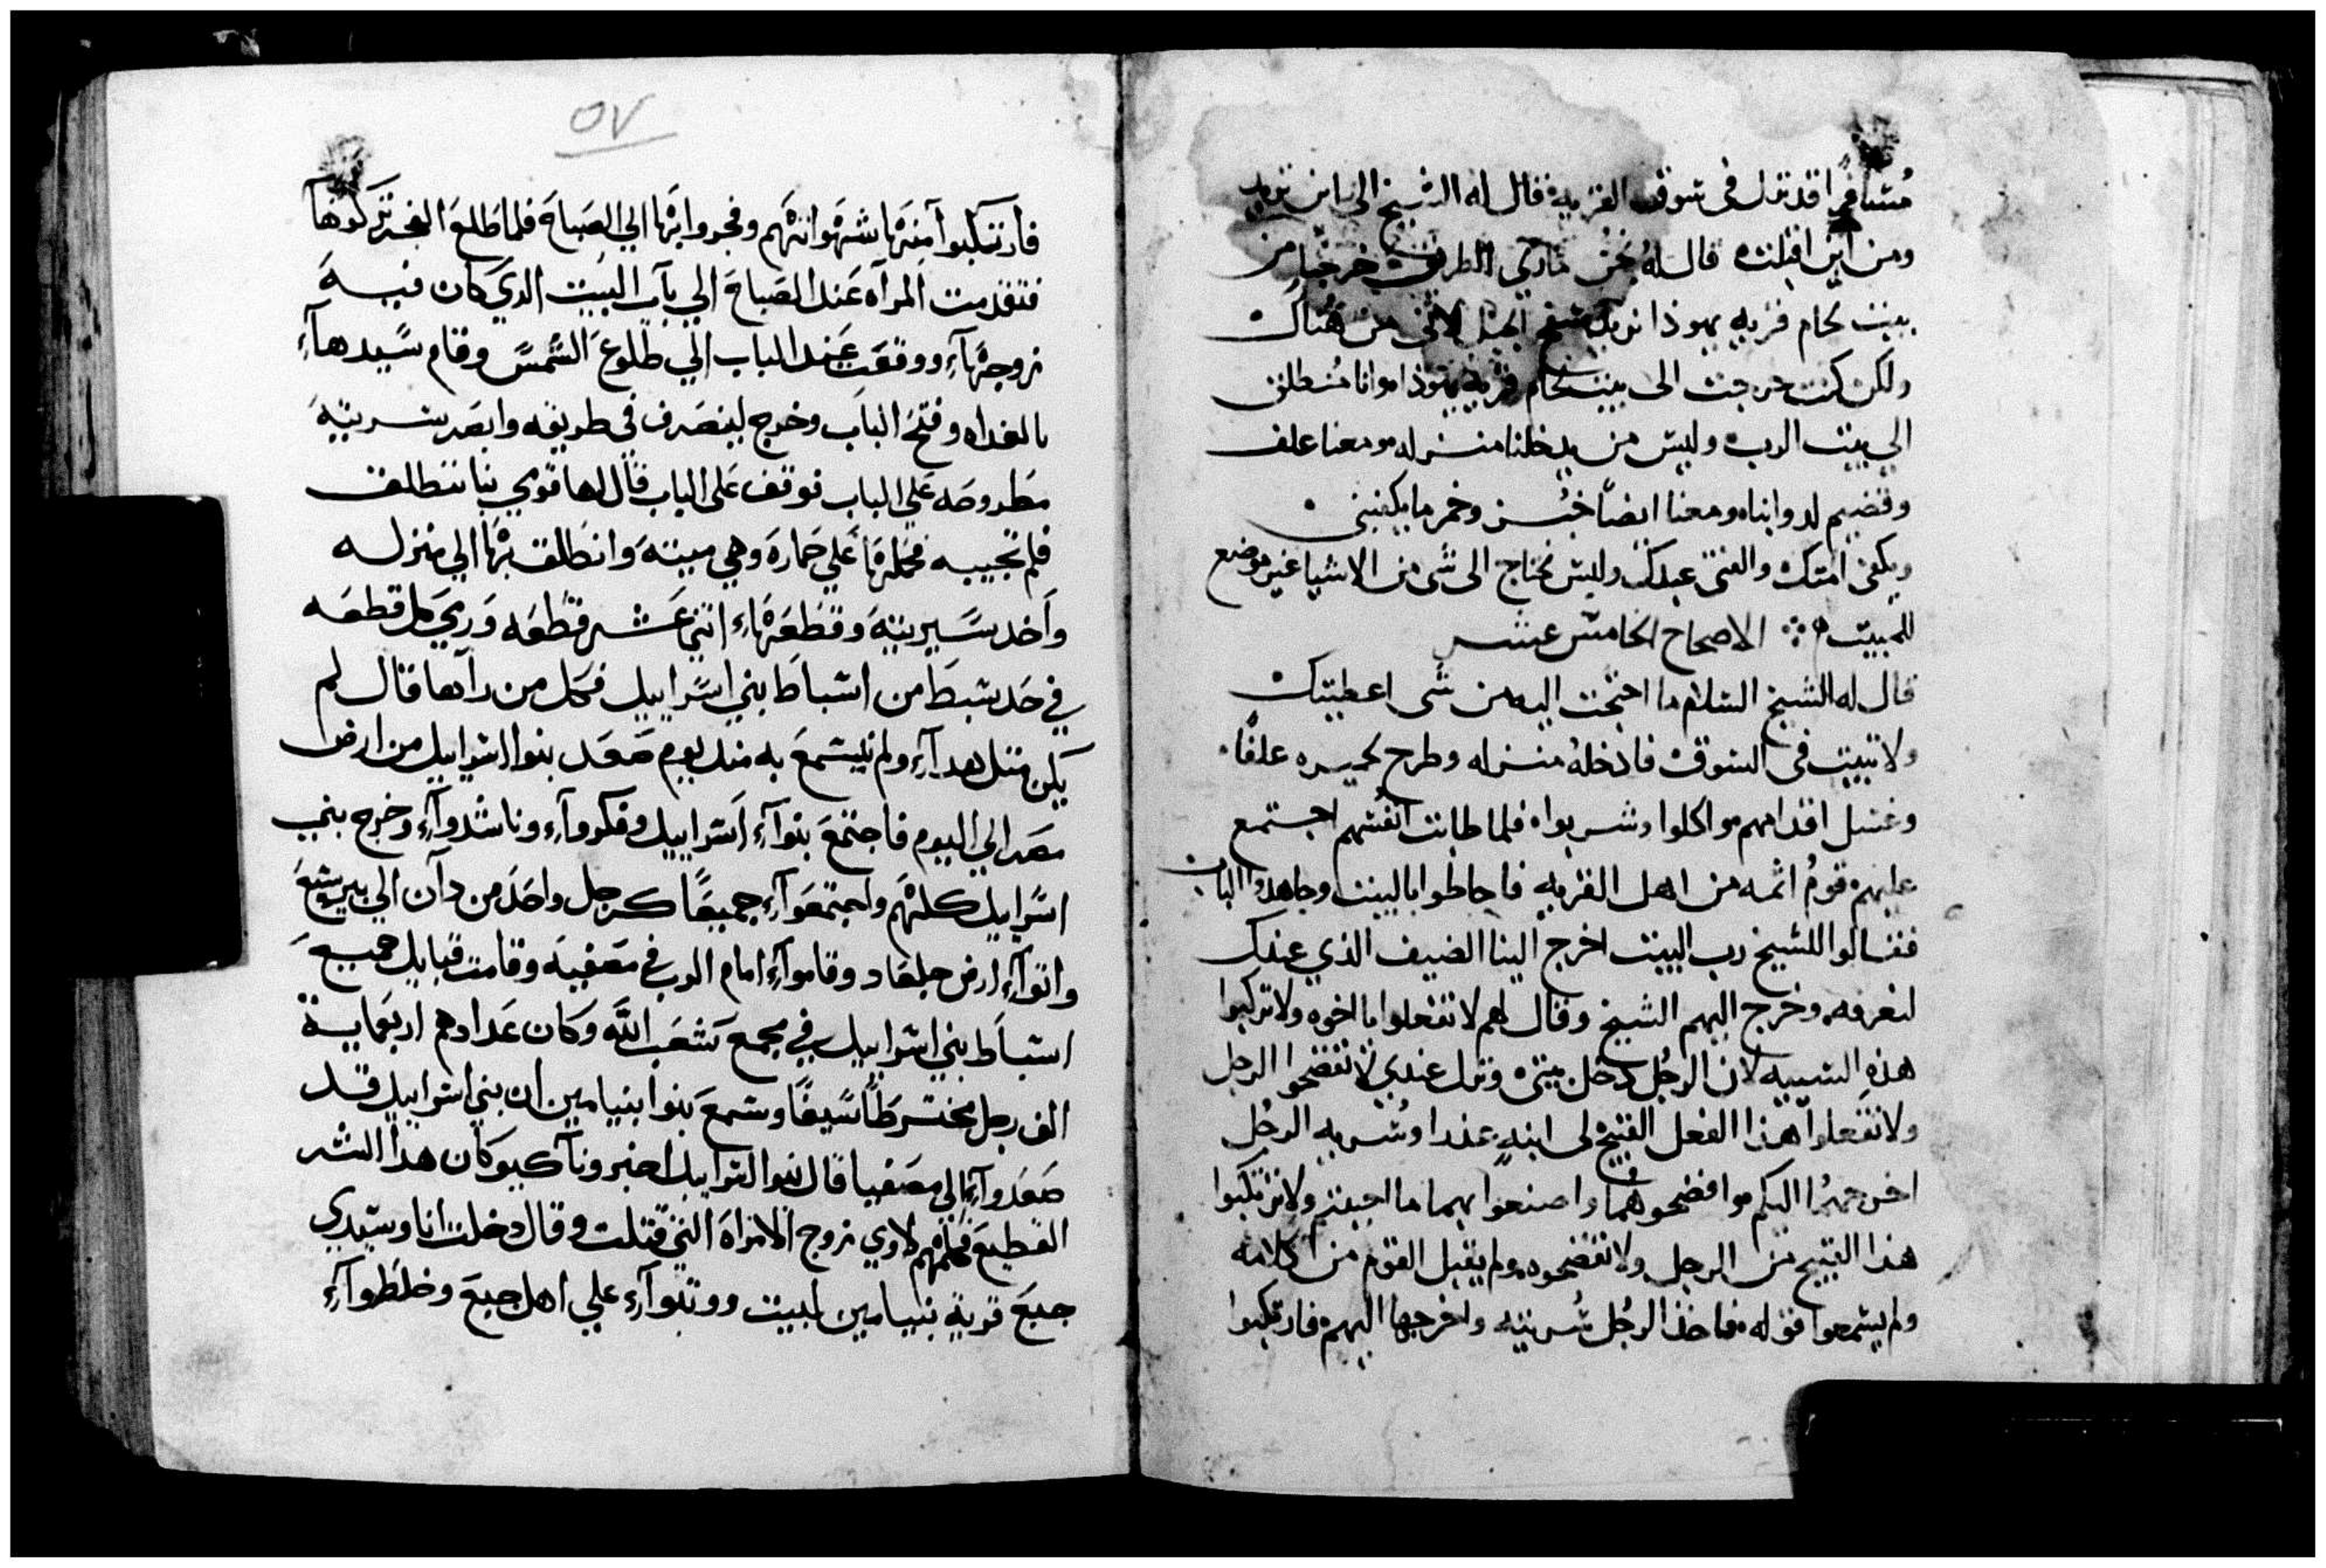 مسافرا قد نزل فى سوق القريه فقال له الشيخ الى اين تريد
ومن اين اقبلت قال له نحن مارين الطريق خرجنا من
بيت لحام قريه يهوذا نريد سفح الجبل لاننى من هناك
ولكن كنت خرجت الى بيت لحام قرية يهوذا وانا منطلق
الي بيت الرب وليس من يدخلنا منزله ومعنا علف
وقضيم لدوابنا ومعنا ايضًا خبز وخمر ما يكفينى
ويكفى امتك والفتى عبدك وليس نحتاج الى شى من الاشيا غير موضع
للمبيت الاصحاح الخامس عشر
قال له الشيخ السلام ما احتجت اليه من شى اعطيتك
ولا تبيت فى السوق فادخله منزله وطرح لحميره علفًا
وغسل اقدامهم واكلوا وشربوا فلما طابت انفسهم اجتمع
عليهم قوم اثمه من اهل القريه فاحاطوا بالبيت وجاهدوا الباب
فقالوا للشيخ رب البيت اخرج الينا الضيف الذي عندك
لنعرفه وخرج اليهم الشيخ وقال لهم لا تفعلوا يا اخوه ولا تركبوا
هذه السييه لان الرجل دخل بيتى ونزل عندي لا تفضحوا الرجل
ولا تفعلوا هذا الفعل القبيح لى ابنه عذرا وسريه الرجل
اخرجهما اليكم وافضحوهما واصنعوا بهما ما احببتم ولا ترتكبوا
هذا القبيح من الرجل ولا تفضحوه ولم يقبل القوم من كلامه
ولم يسمعوا قوله فاخذ الرجل سريته واخرجها اليهم فارتكبوا
٥٧
فارتكبوا منها شهواتهم وفجروا بها الي الصباح فلما طلع الفجر تركوها
فتقدمت المرآه عند الصباح الي باب البيت الدي كان فيه
زوجها ووقعت عند الباب الي طلوع الشمس وقام سيدها
بالغداه وفتح الباب وخرج لينصرف في طريقه وابصر سريته
مطروحه علي الباب فوقف على الباب قال لها قومي بنا ننطلق
فلم تجيبه فحملها علي حماره وهي ميته وانطلق بها الي منزله
واخد سيريته وقطعها اتني عشر قطعه ورمي كل قطعه
في حد سبط من اسباط بني اسراييل فكل من رآها قال لم
يكن متل هدا ولم يسمع به مند يوم صعد بنوا اسراييل من ارض
مصر الي اليوم فاجتمع بنوا اسراييل وفكروا وناشدوا وخرج بني
اسراييل كلهم واجتمعوا جميعًا كرجل واحد من دآن الي بيرسبع
واتوا ارض جلعاد وقاموا امام الرب في مصفيه وقامت قبايل جميع
اسباط بني اسراييل في مجمع شعب الله وكان عدادهم اربعماية
الف رجل مخترطًا سيفًا وسمع بنوا بنيامين ان بني اسراييل قد
صعدوا الي مصفيا قال بنوا اسراييل اخبرونا كيو كان هدا الشر
الفطيع فكلمهم لاوي زوج الامراة التي قتلت وقال دخلت انا وسيدي
جبع قرية بنيامين لمبيت ووتبوا علي اهل جبع وخلطوا